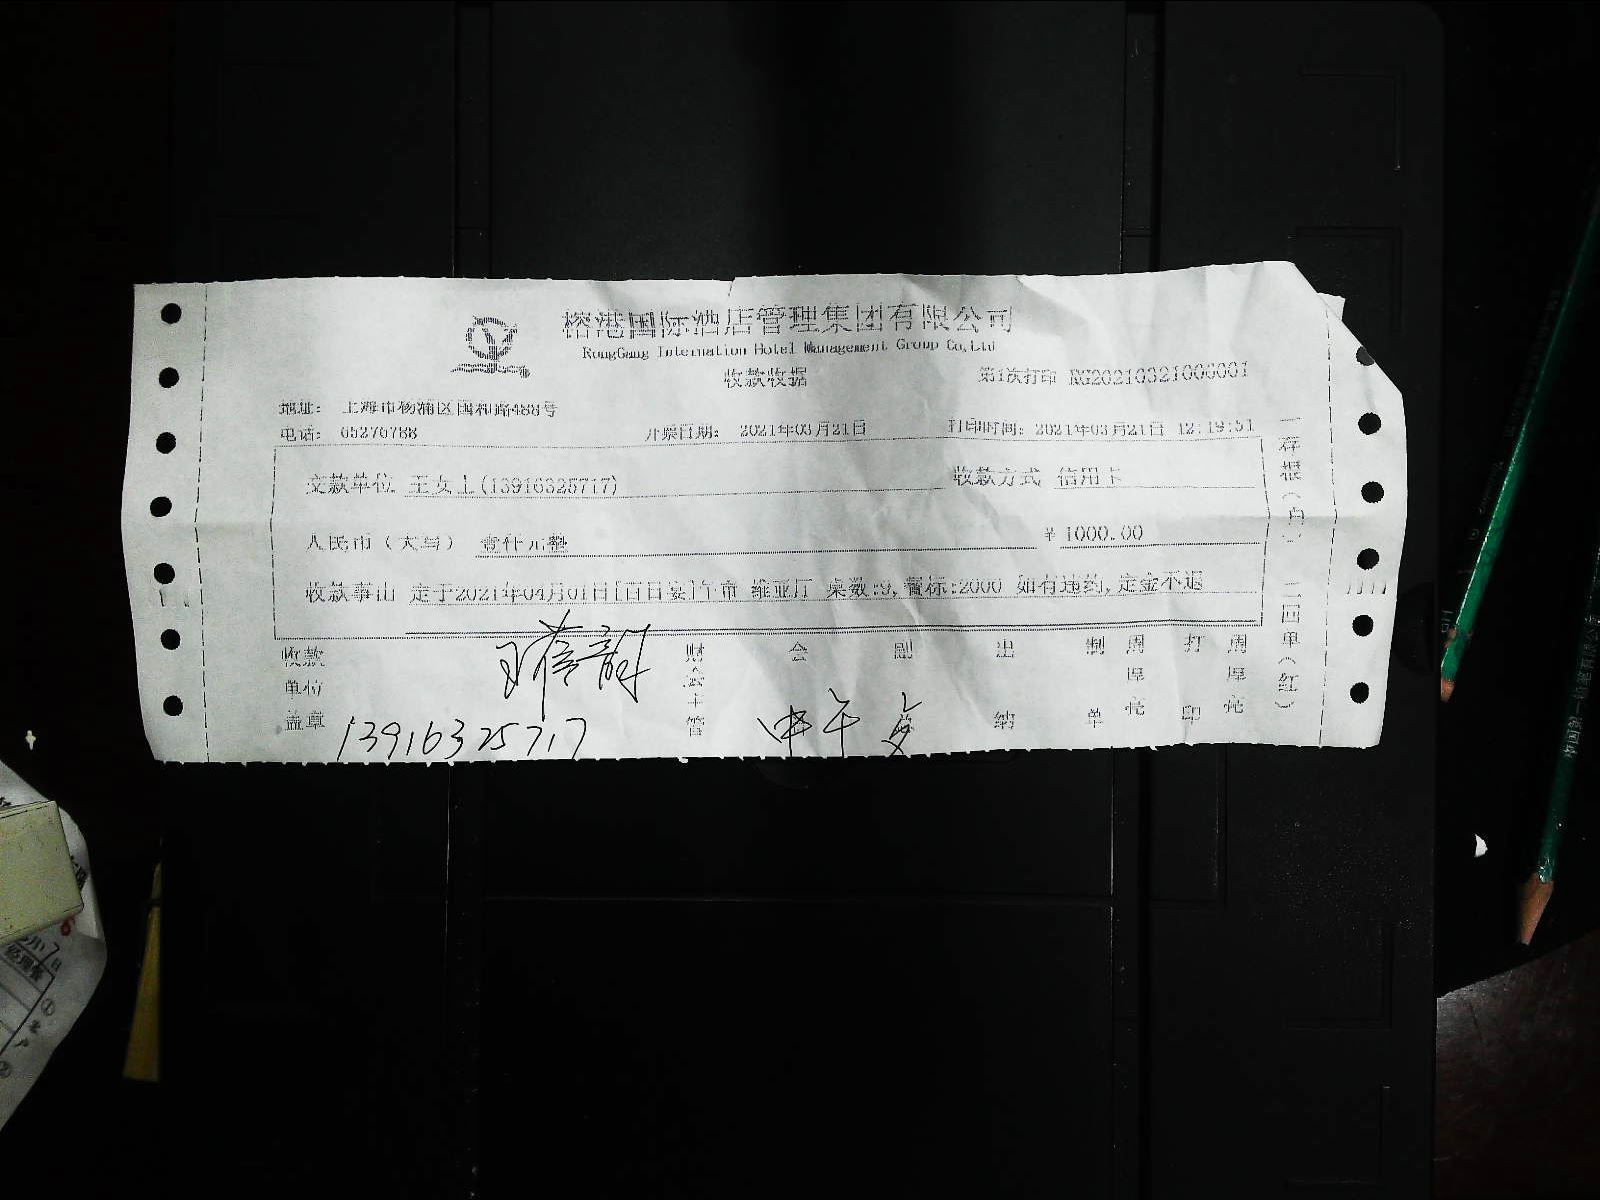 榕港国际酒店管理集团有限公司
RongGang Internation Hotel Management Group Co,Ltd
收款收据
第1次打印 RG20210321000001
地址： 上海市杨浦区国和路488号
电话： 65276788
开票日期： 2021年03月21日
打印时间：2021年03月21日 12:19:51
交款单位 王女士(13916325717)
收款方式 信用卡
人民币（大写） 壹仟元整
￥1000.00
收款事由 定于2021年04月01日[百日宴]午市 维亚厅 桌数:9,餐标:2000 如有违约,定金不退
收款单位盖章
13916325717
财会主管
会
副
出纳
制单
周厚亮
打印
周厚亮
中午
一存根（白） 二回单（红）